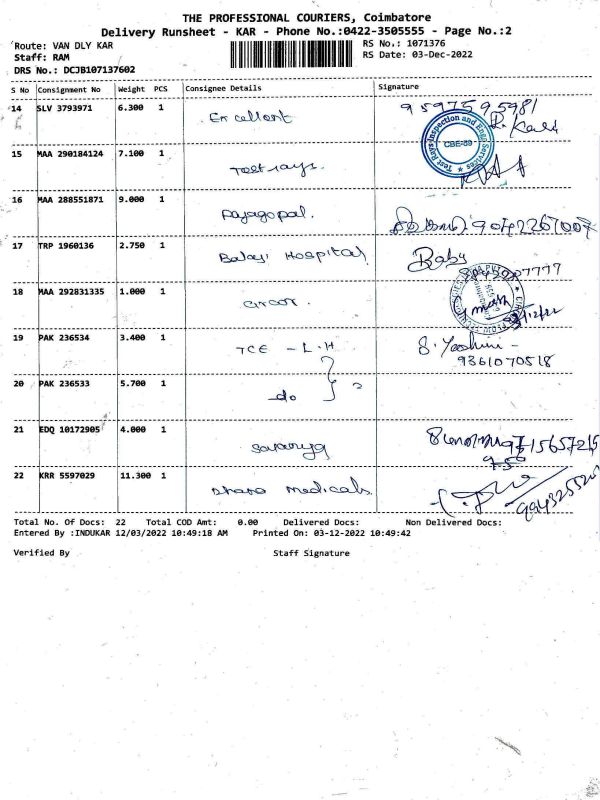 THE PROFESSIONAL COURIERS, Coimbatore
Delivery Runsheet - KAR - Phone No.:0422-3505555 - Page No.:2
Route: VAN DLY KAR RS No.: 1071376
Staff: RAM RS Date: 03-Dec-2022
DRS No.: DCJB107137602
S No Consignment No Weight PCS Consignee Details Signature
14 SLV 3793971 6.300 1 Excellent 9597595981
Test Rays Inspection and Engg Services CBE-59
15 MAA 290184124 7.100 1 Test rays.
16 MAA 288551871 9.000 1 Rajagopal.
17 TRP 1960136 2.750 1 Balaji Hospital Baby
18 MAA 292831335 1.000 1 Circor.
19 PAK 236534 3.400 1 TCE - L.H S. Yashini -
9361070518
20 PAK 236533 5.700 1 do
21 EDQ 10172905 4.000 1
22 KRR 5597029 11.300 1 Dhara Medicals
Total No. Of Docs: 22 Total COD Amt: 0.00 Delivered Docs: Non Delivered Docs:
Entered By :INDUKAR 12/03/2022 10:49:18 AM Printed On: 03-12-2022 10:49:42
Verified By Staff Signature